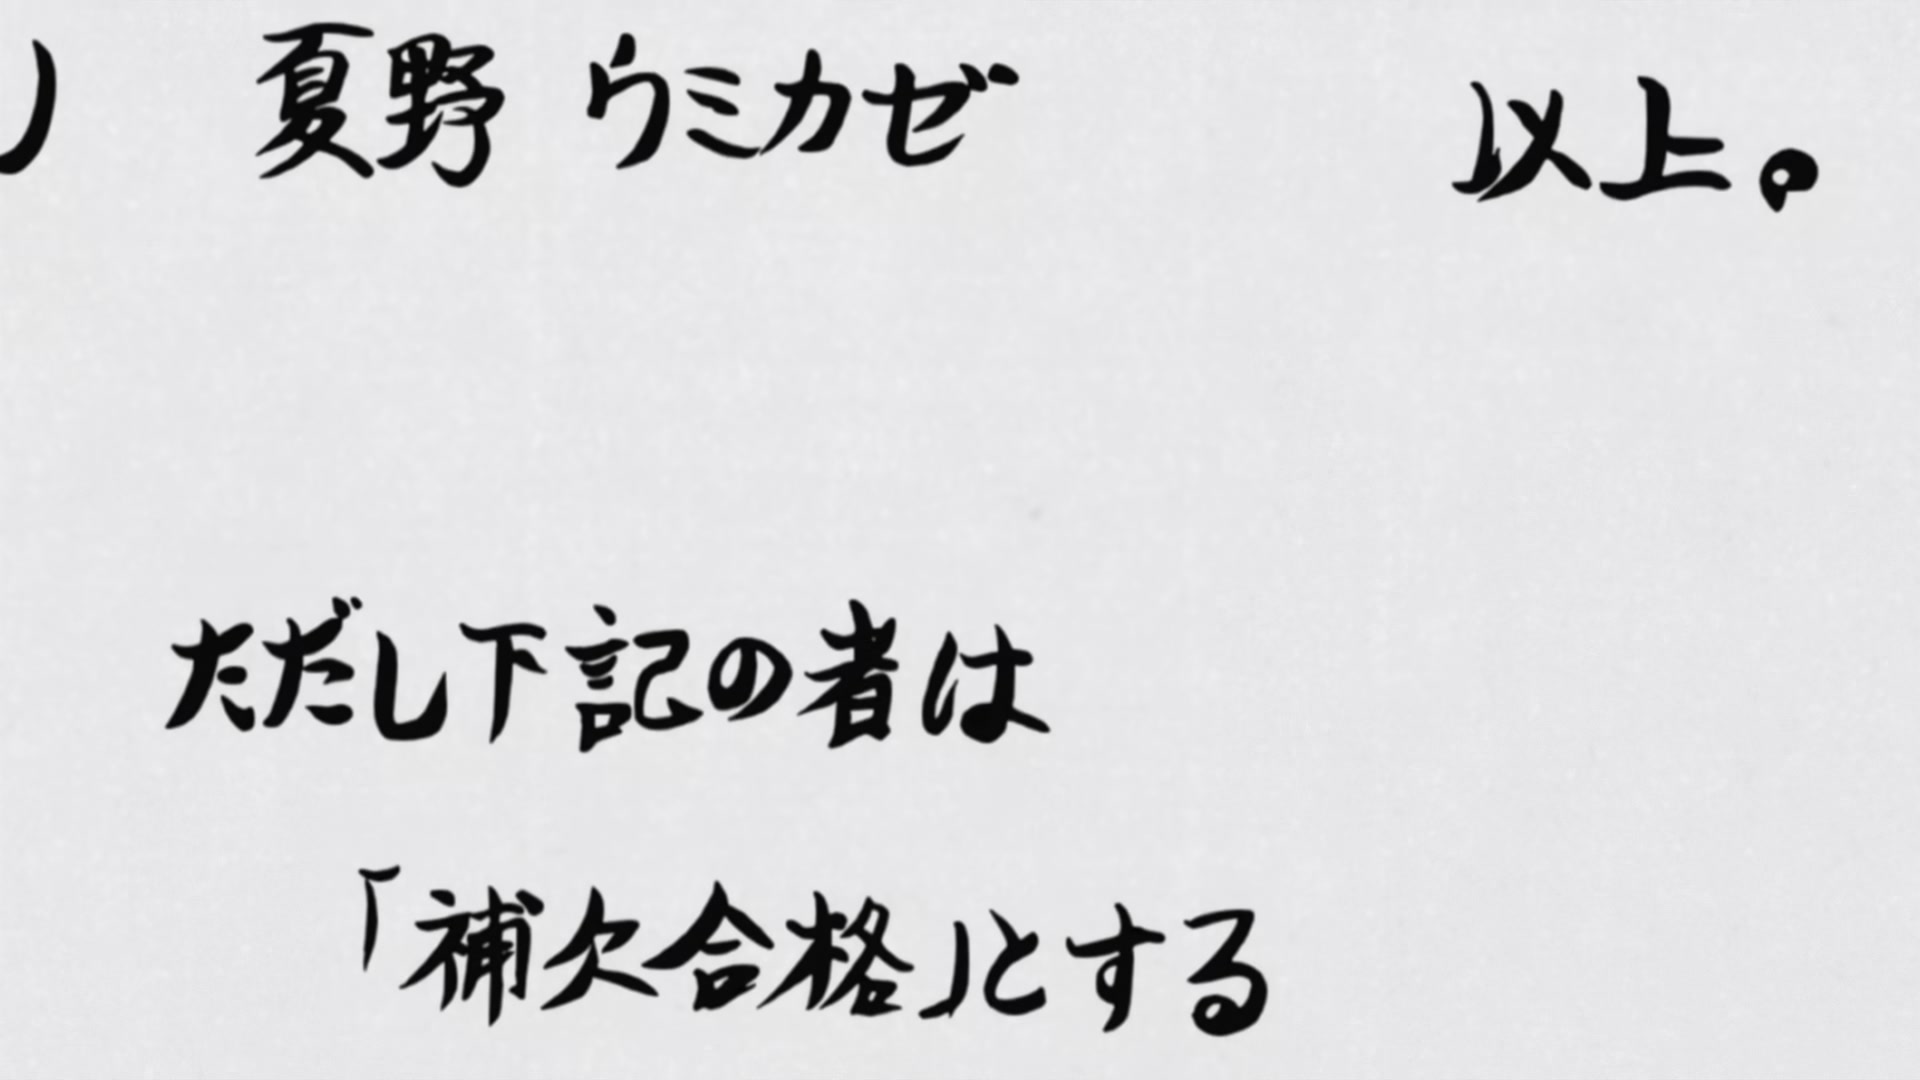 ノ 夏野 ウミカゼ 以上。
ただし下記の者は
「補欠合格」とする